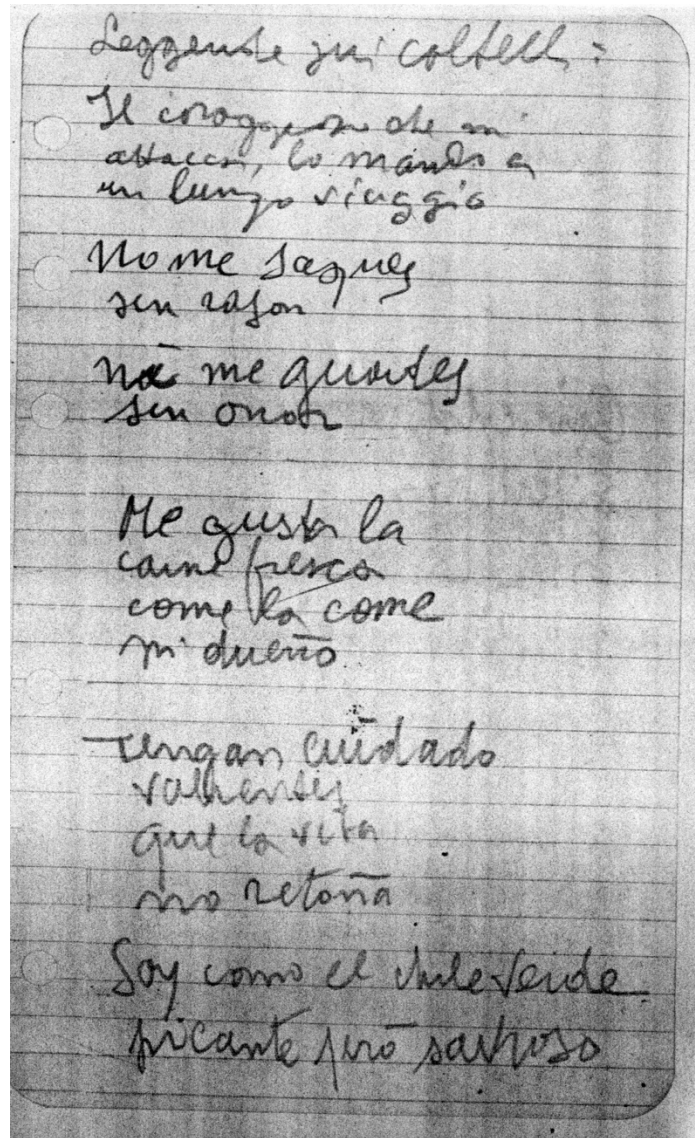 Leggende sui coltelli:
Il coraggioso che mi
attacca, lo mando a
un lungo viaggio
No me saques
sin rason
no me guardes
sin onor
Me gusta la
carne fresca
come la come
mi dueño
Tengan cuidado
valientes
que la vita
no retoña
Soy como el chile verde
picante però sabroso